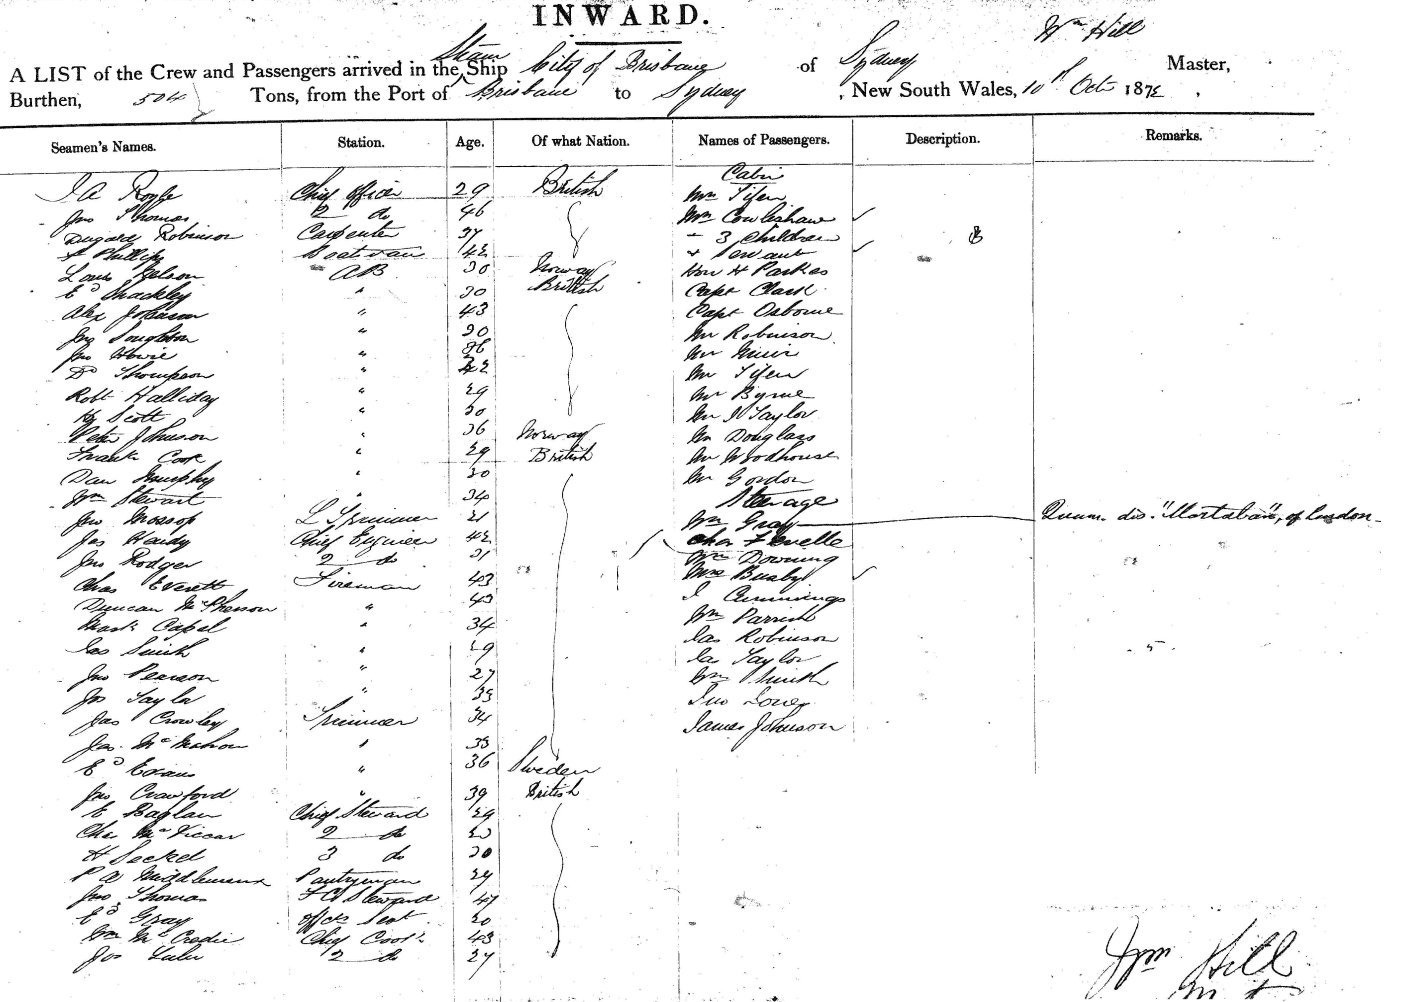 INWARD.
Wm Hill
A LIST of the Crew and Passengers arrived in the Steam Ship City of Brisbane of Sydney Master,
Burthen, 504 Tons, from the Port of Brisbane to Sydney, New South Wales, 10th Oct 187
Seamen's Names. Station. Age. Of what Nation. Names of Passengers. Description. Remarks.
Cabin
J A Royle Chief Officer 29 British Mrs Tifen
Jno Thomas 2 do 46 Mrs Cowlishaw
Dugard Robinson Carpenter 37 " 3 Children
Phillips Boatswain 42 + Servant
Louis Nelson AB 30 Norway Hon H Parkes
Ed Shackley " 30 British Capt Clark
Alex Johnson " 43 Capt Osborne
Jno Loughton " 30 Mr Robinson
Jno Howie " Mr Muir
D Thompson " 42 Mr Tifen
Robt Halliday " 29 Mr Byrne
Hy Scott " 30 Mr W Taylor
Peter Johnson " 36 Norway Mr Douglass
Frank Cook " 29 British Mr Woodhouse
Dan Murphy " 30 Mr Gordon
Wm Stewart " 34 Steerage
Jno Mossop L Trimmer 21 Wm Gray "Martaban", of London
Jas Hardy Chief Engineer 42 Chas
Jno Rodger 2 do 31 Wm Downing
Chas Everett Fireman 43 Mrs Busby
Duncan McPherson " 43 J Cummings
Mark Capel " 34 Wm Parrish
Jas Smith " 29 Jas Robinson
Jno Pearson " 27 Jas Taylor
Jos Taylor " 35 Wm Smith
Jas Crowley Trimmer 34 Jno Lowe
Jas. McMahon " 35 James Johnson
Ed Evans " 36 Sweden
Jno Crawford " 39 British
E Raglan Chief Steward 29
Chas McViccar 2 do
H Seckel 3 do 30
P A Middlemass Pantryman 24
Jno Thomas F C Steward 47
Ed Gray Offcs Sevt 20
Wm McCradie Chief Cook 43
Jos 2 do 27
Wm Hill